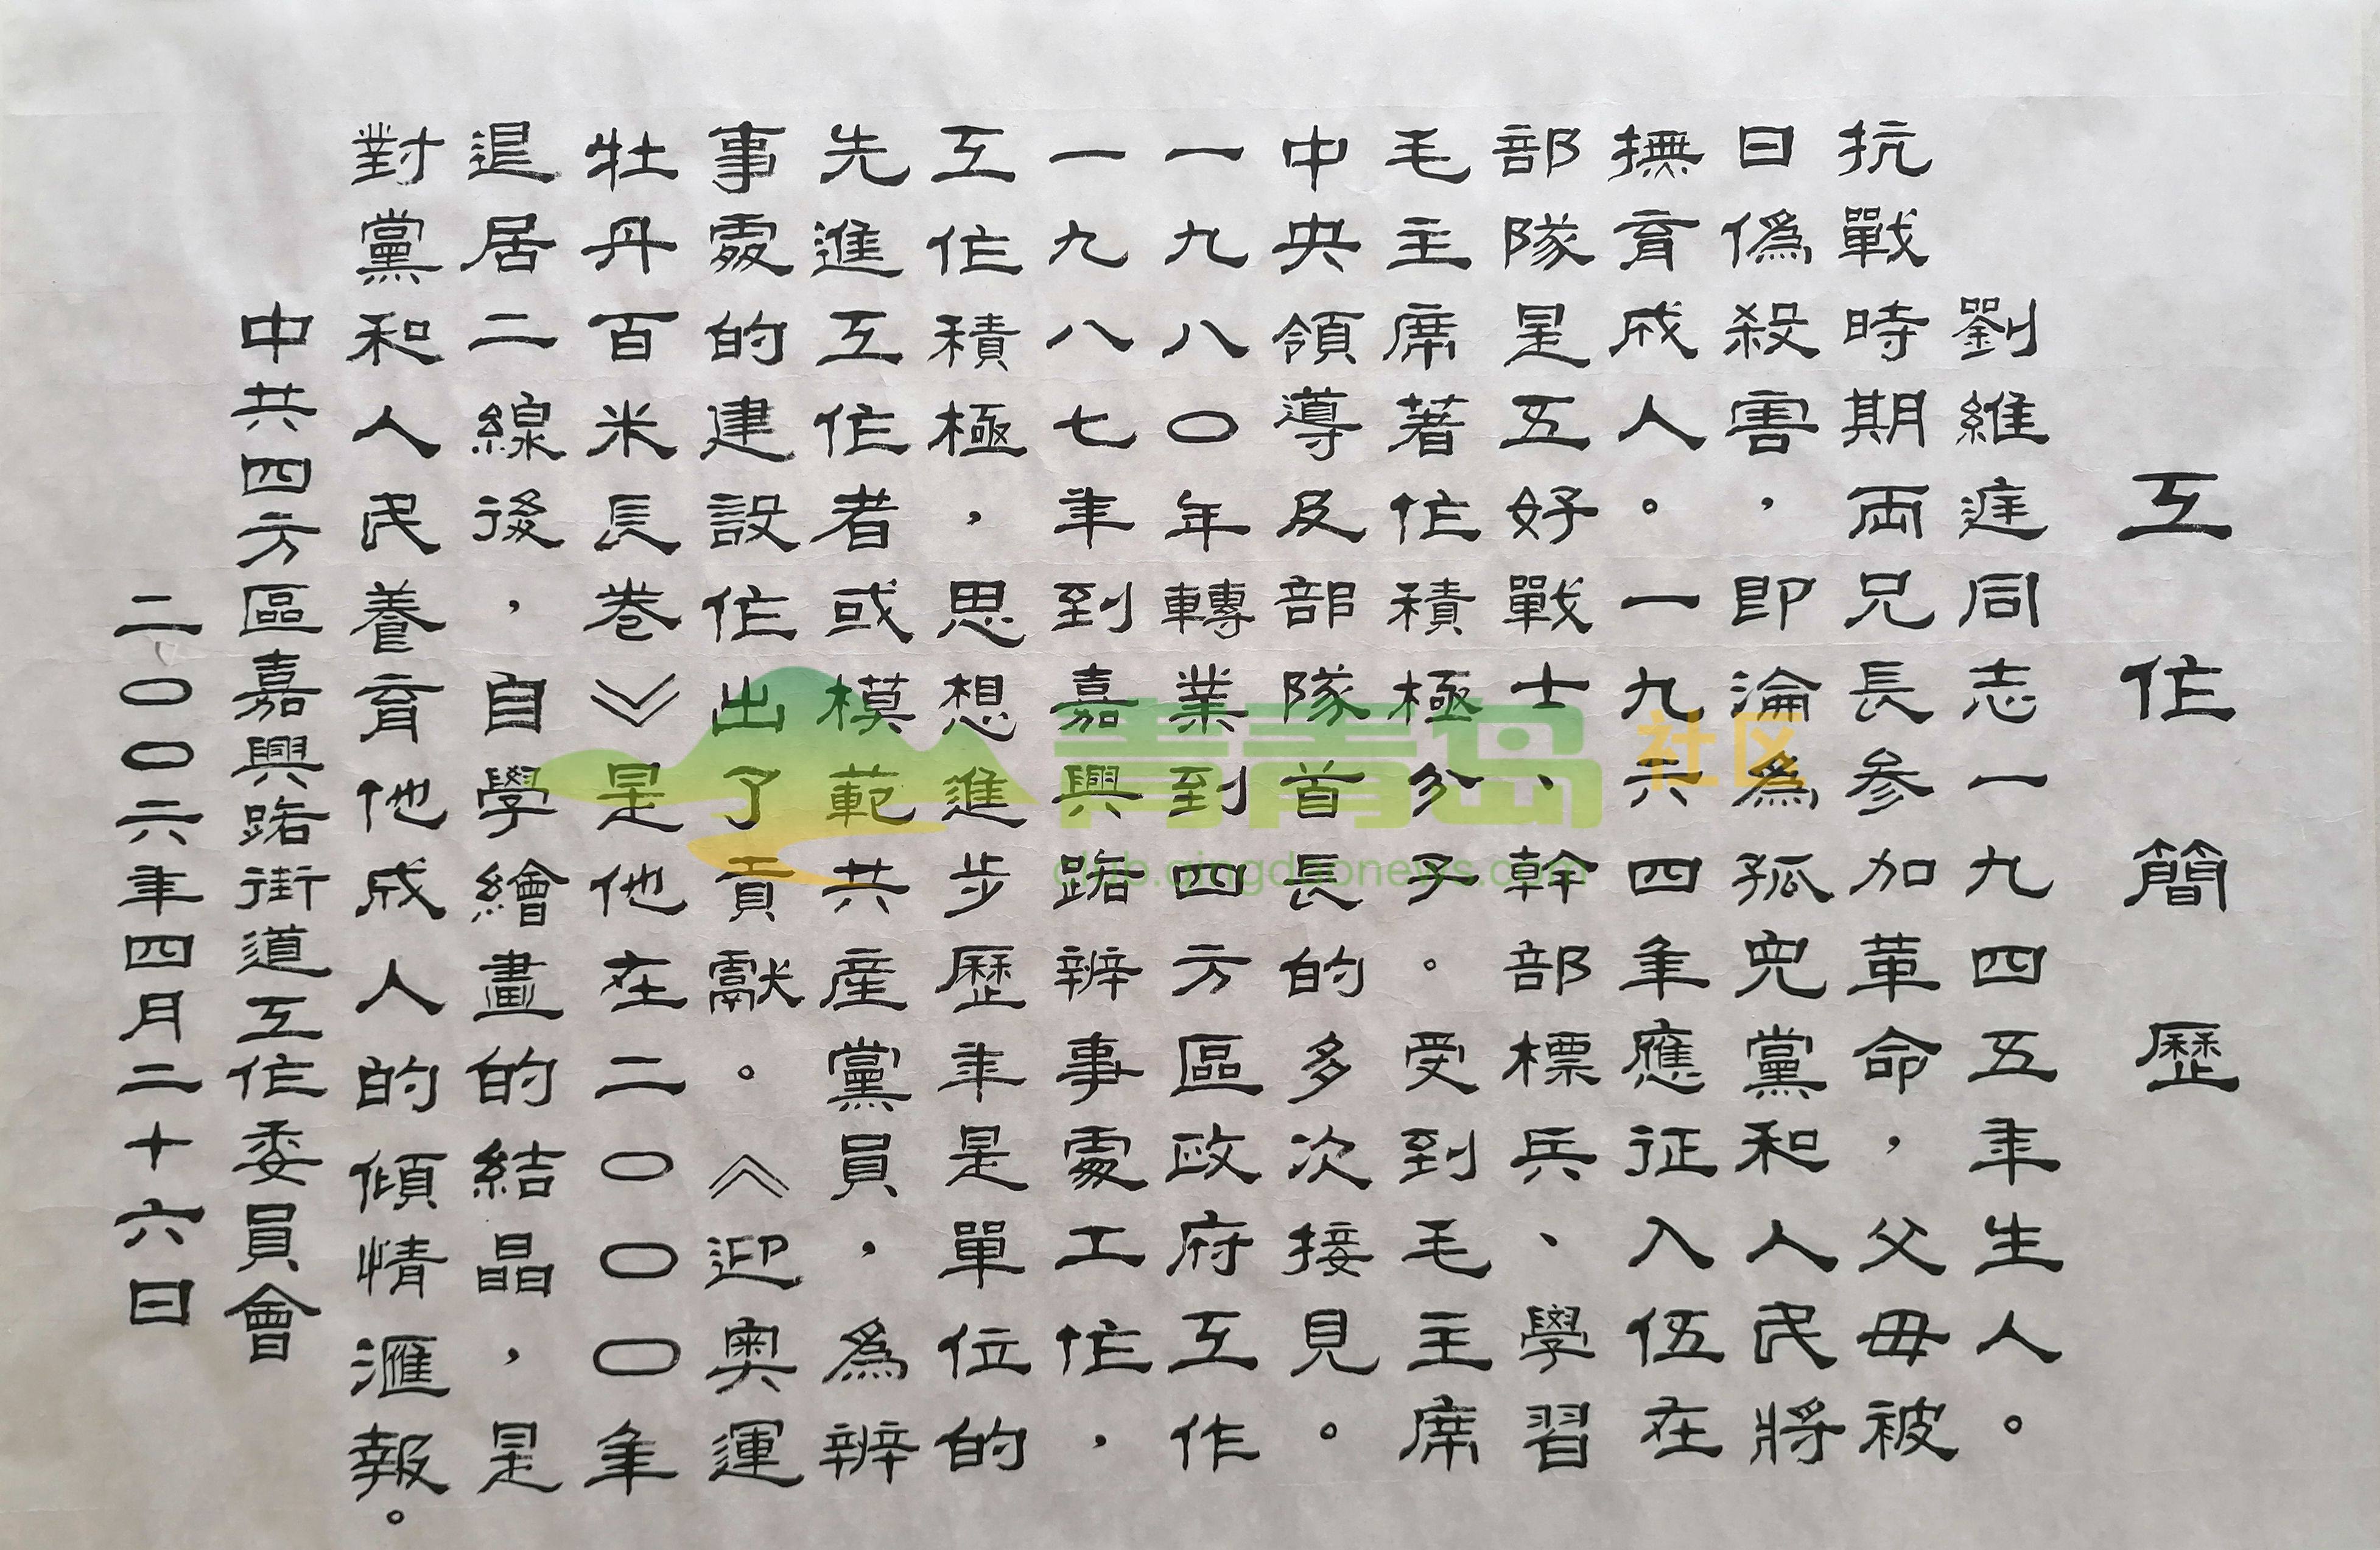 工作簡歷
劉維庭同志一九四五年生人。
抗戰時期両兄長参加革命，父母被
日僞殺害，即淪為孤兒黨和人民將
撫育成人。一九六四年應征入伍在
部隊是五好戰士、幹部標兵、學習
毛主席著作積極分子。受到毛主席
中央領導及部隊首長的多次接見。
一九八〇年轉業到四方區政府工作
一九八七年到嘉興路辨事處工作，
工作積極，思想進步歷年是單位的
先進工作者或模範共産黨員，為辨
事處的建設作出了貢獻。《迎奥運
牡丹百米長卷》是他在二〇〇〇年
退居二線後，自學繪畫的結晶，是
對黨和人民養育他成人的傾情滙報。
中共四方區嘉興路街道工作委員會
二〇〇六年四月二十六日
青青岛 社区
club.qingdaonews.com